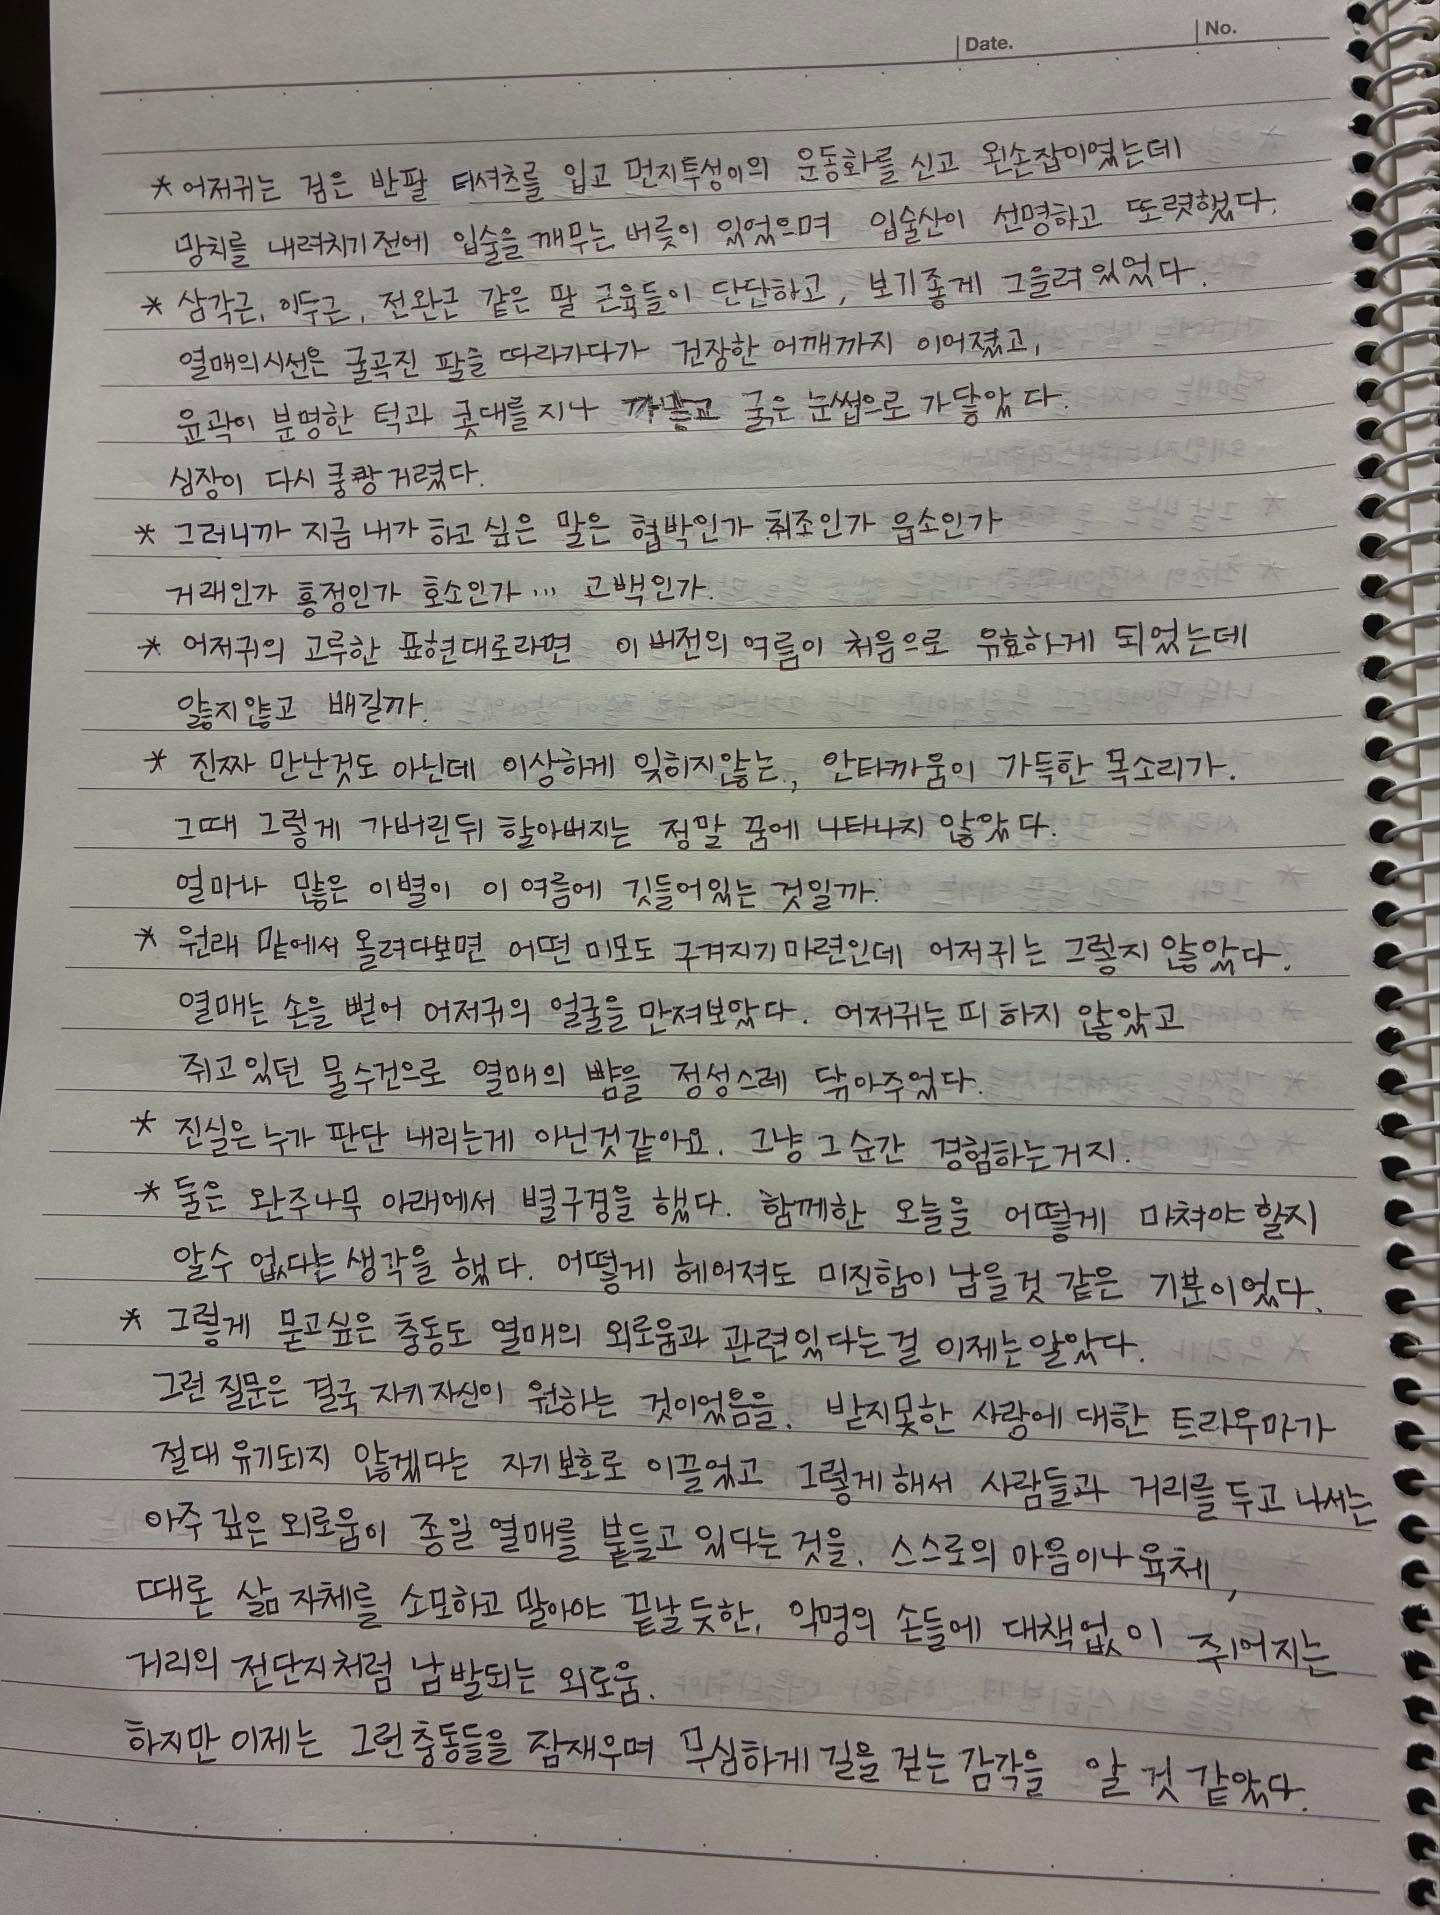 Date. No.
* 어저귀는 검은 반팔 티셔츠를 입고 먼지투성이의 운동화를 신고 왼손잡이였는데
망치를 내려치기 전에 입술을 깨무는 버릇이 있었으며 입술산이 선명하고 또렷했다.
* 삼각근, 이두근, 전완근 같은 팔 근육들이 단단하고, 보기좋게 그을려 있었다.
열매의 시선은 굴곡진 팔을 따라가다가 건장한 어깨까지 이어졌고,
윤곽이 분명한 턱과 콧대를 지나 굵은 눈썹으로 가 닿았다.
심장이 다시 쿵쾅거렸다.
* 그러니까 지금 내가 하고 싶은 말은 협박인가 취조인가 읍소인가
거래인가 흥정인가 호소인가... 고백인가.
* 어저귀의 고루한 표현대로라면 이 버전의 여름이 처음으로 유효하게 되었는데
앓지않고 배길까.
* 진짜 만난것도 아닌데 이상하게 잊히지않는, 안타까움이 가득한 목소리가.
그때 그렇게 가버린 뒤 할아버지는 정말 꿈에 나타나지 않았다.
얼마나 많은 이별이 이 여름에 깃들어있는 것일까.
* 원래 밑에서 올려다보면 어떤 미모도 구겨지기 마련인데 어저귀는 그렇지 않았다.
열매는 손을 뻗어 어저귀의 얼굴을 만져보았다. 어저귀는 피하지 않았고
쥐고있던 물수건으로 열매의 뺨을 정성스레 닦아주었다.
* 진실은 누가 판단 내리는게 아닌것 같아요. 그냥 그 순간 경험하는거지.
* 둘은 완주나무 아래에서 별구경을 했다. 함께한 오늘을 어떻게 마쳐야 할지
알수 없다는 생각을 했다. 어떻게 헤어져도 미진함이 남을것 같은 기분이었다.
* 그렇게 묻고싶은 충동도 열매의 외로움과 관련있다는걸 이제는 알았다.
그런 질문은 결국 자기 자신이 원하는 것이었음을. 받지못한 사랑에 대한 트라우마가
절대 유기되지 않겠다는 자기보호로 이끌었고 그렇게 해서 사람들과 거리를 두고 나서는
아주 깊은 외로움이 종일 열매를 붙들고 있다는 것을. 스스로의 마음이나 육체,
때론 삶 자체를 소모하고 말아야 끝날 듯한, 익명의 손들에 대책없이 쥐어지는
거리의 전단지처럼 남발되는 외로움.
하지만 이제는 그런 충동들을 잠재우며 무심하게 길을 걷는 감각을 알 것 같았다.